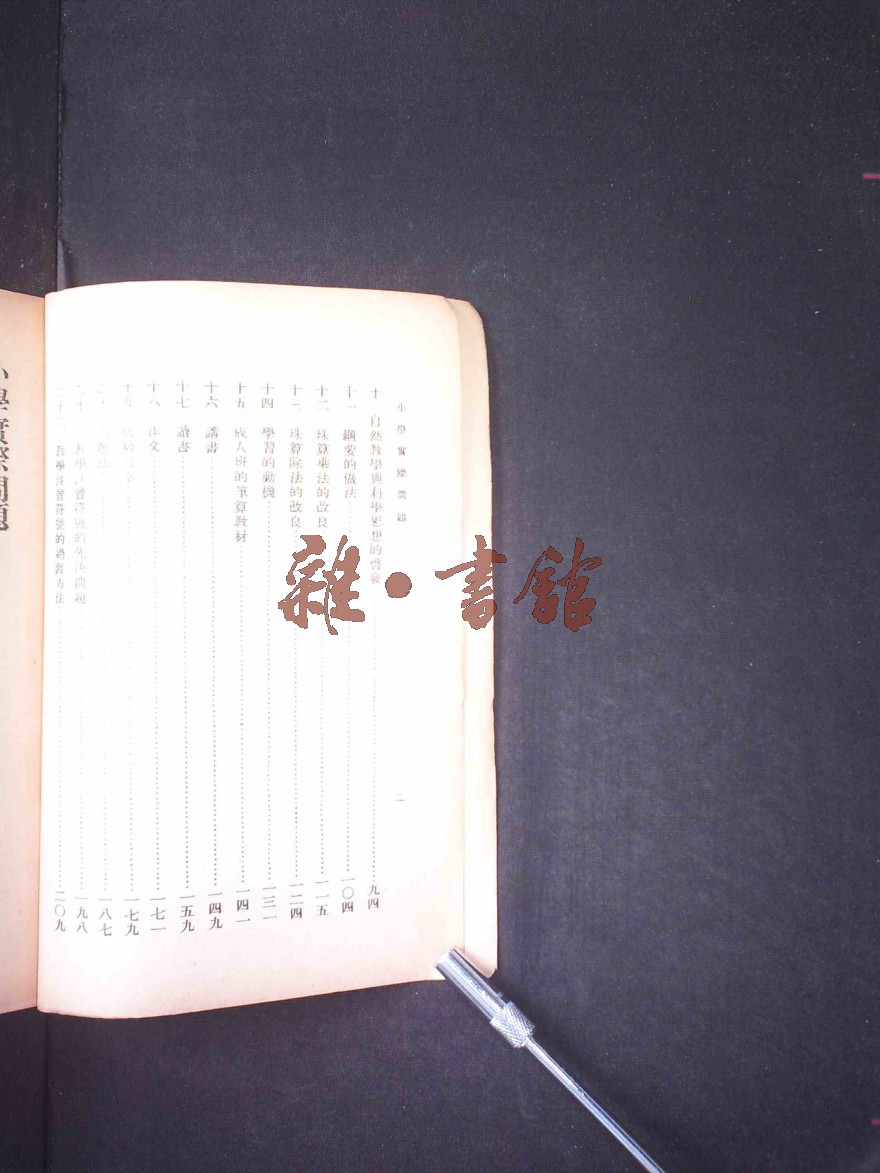 小學實際問題
二
十 自然教學與科學思想的啓發……九四
十一 綱要的做法……一〇四
十二 珠算乘法的改良……一一五
十三 珠算除法的改良……一二四
十四 學習的動機……一三一
十五 成人班的筆算教材……一四一
十六 講書……一四九
十七 讀書……一五九
十八 作文……一七一
十九……一七九
二十……一八七
二十一 教學注音符號的先決問題……一九八
二十二 教學注音符號的過渡方法……二〇九
小學實際問題
雜·書館